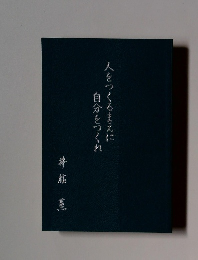 人をつくるまえに
自分をつくれ